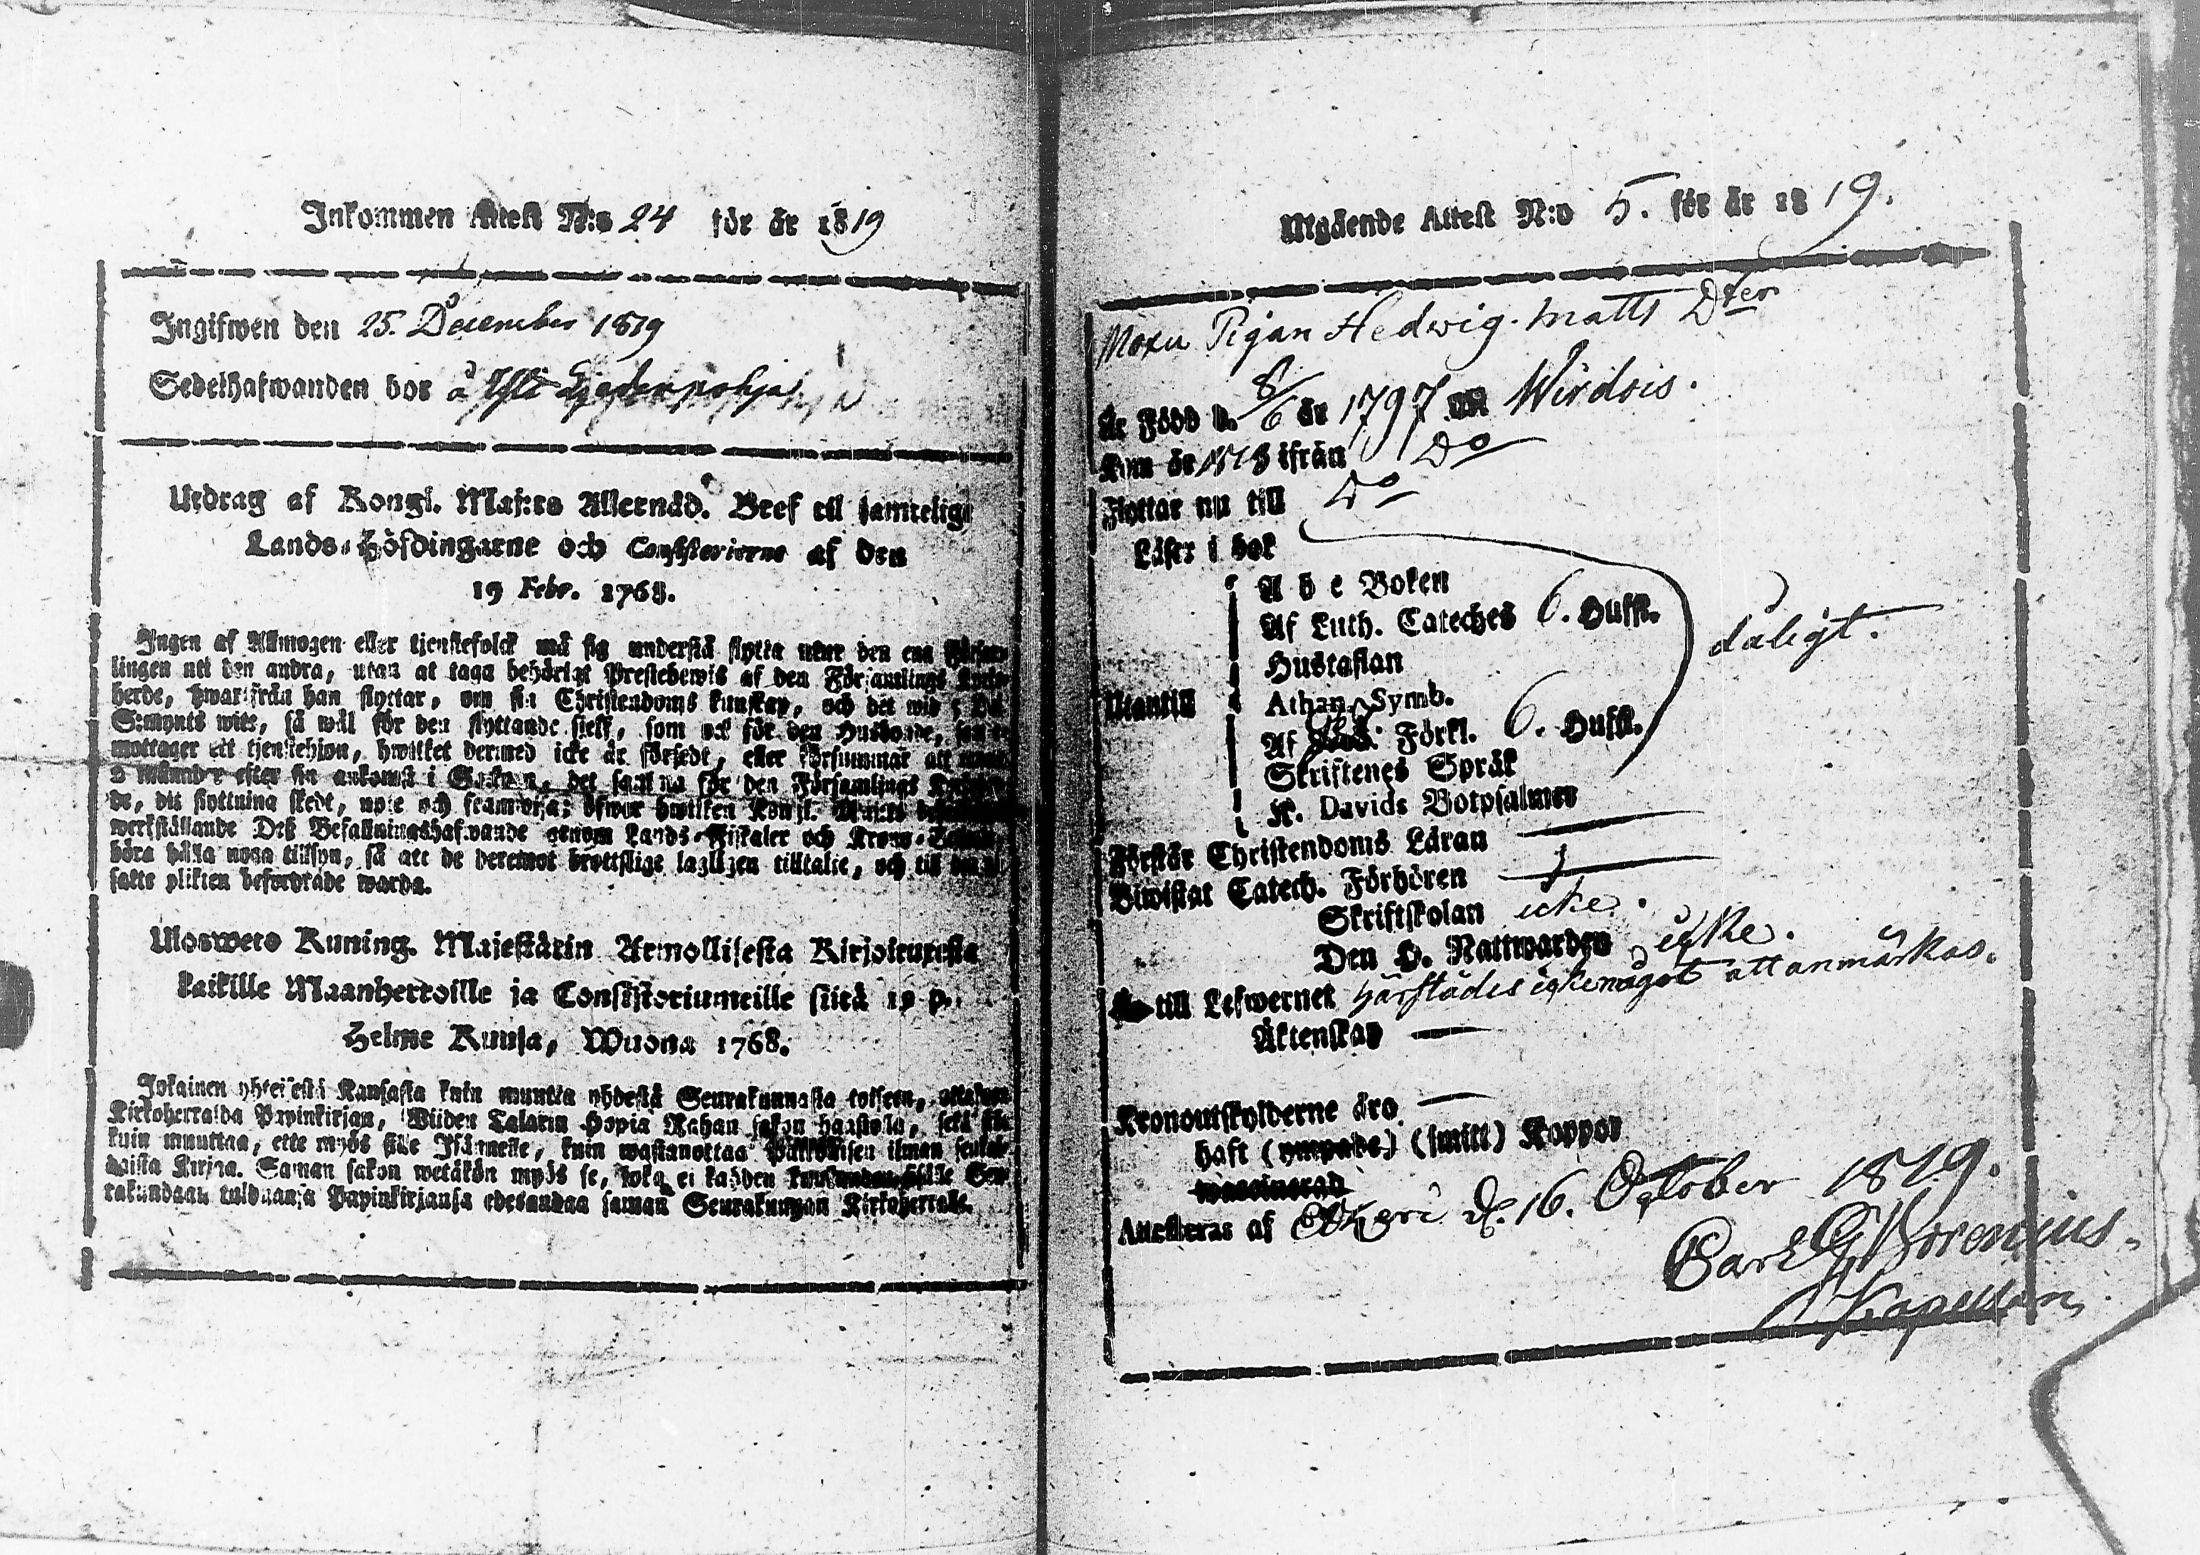 Inkommen Attest N:o 24 för år 1819
Ingifwen den 25. December 1819
Sedelhafwanden bor å
Utdrag af Kongl. Maj:ts Allernåd. Bref til samtelige
Lands-Höfdingarne och Consistorierne af den
19 Febr. 1768.
Ingen af Allmogen eller tjenstefolck må sig understå flytta utur den ena Försam-
lingen uti den andra, utan at taga behörigt Prestebewis af den Församlings Kyrko-
herde, hwarifrån han flyttar, om sin Christendoms kunskap, och det wid 5 Dal.
S:mynts wite, så wäl för den flyttande sjelf, som ock för den Husbonde, som
mottager ett tjenstehjon, hwilket dermed icke är försedt, eller försummar att
månader efter sin ankomst i den Församlings
de, dit flyttning skedt, upte och framwisa; öfwer hwilken Kongl. Maj:ts
werkställande Deß Befallningshafwande genom Lands-Fiskaler och Krono-
böra hålla noga tillsyn, så att de deremot brottslige lagligen tilltalte, och till
satte plikten befordrade warda.
Ulosweto Kuning. Majestätin Armollisesta Kirjoituxesta
kaikille Maanherroille ja Consistoriumeille siitä 19 p.
Helme Kuusa, Wuona 1768.
Jokainen yhteisestä Kansasta kuin muutta yhdestä Seurakunnasta toiseen, ottakoon
Kirkoherralda Papinkirjan, Wiiden Talarin Hopia Rahan sakon haastolla, sekä
kuin muuttaa, ette myös sille Isännelle, kuin wastanottaa Palkollisen ilman
daista Kirjaa. Saman sakon wetäkön myös se, joka ei kahden
rakundaan tulduansa Papinkirjansa edesandaa saman Seurakunnan Kirkoherralle.
Utgående Attest N:o 5. för år 1819.
Pigan Hedwig Matts Dter
Är Född d. 8/6 år 1797 i Wirdois.
Kom år 1818 ifrån Do
Flyttar nu till Do
Läser i bok
A b c Boken
Af Luth. Cateches 6. Hufst.
Hustaflan
Utantill
Athan. Symb.
Af Förkl. 6. Hufst.
dåligt.
Skriftenes Språk
K. Davids Botpsalmer
Förstår Christendoms Läran
Biwistat Catech. Förhören
Skriftskolan icke.
Den H. Nattwarden icke.
till Lefwernet härstädes icke något att anmärkas.
Äktenskap
Kronoutskylderne äro
haft (ympade) (smitt) Koppor
waccinerad
Attesteras af Etzeri d. 16. October 1819.
Carl G Borenius.
Kapellan